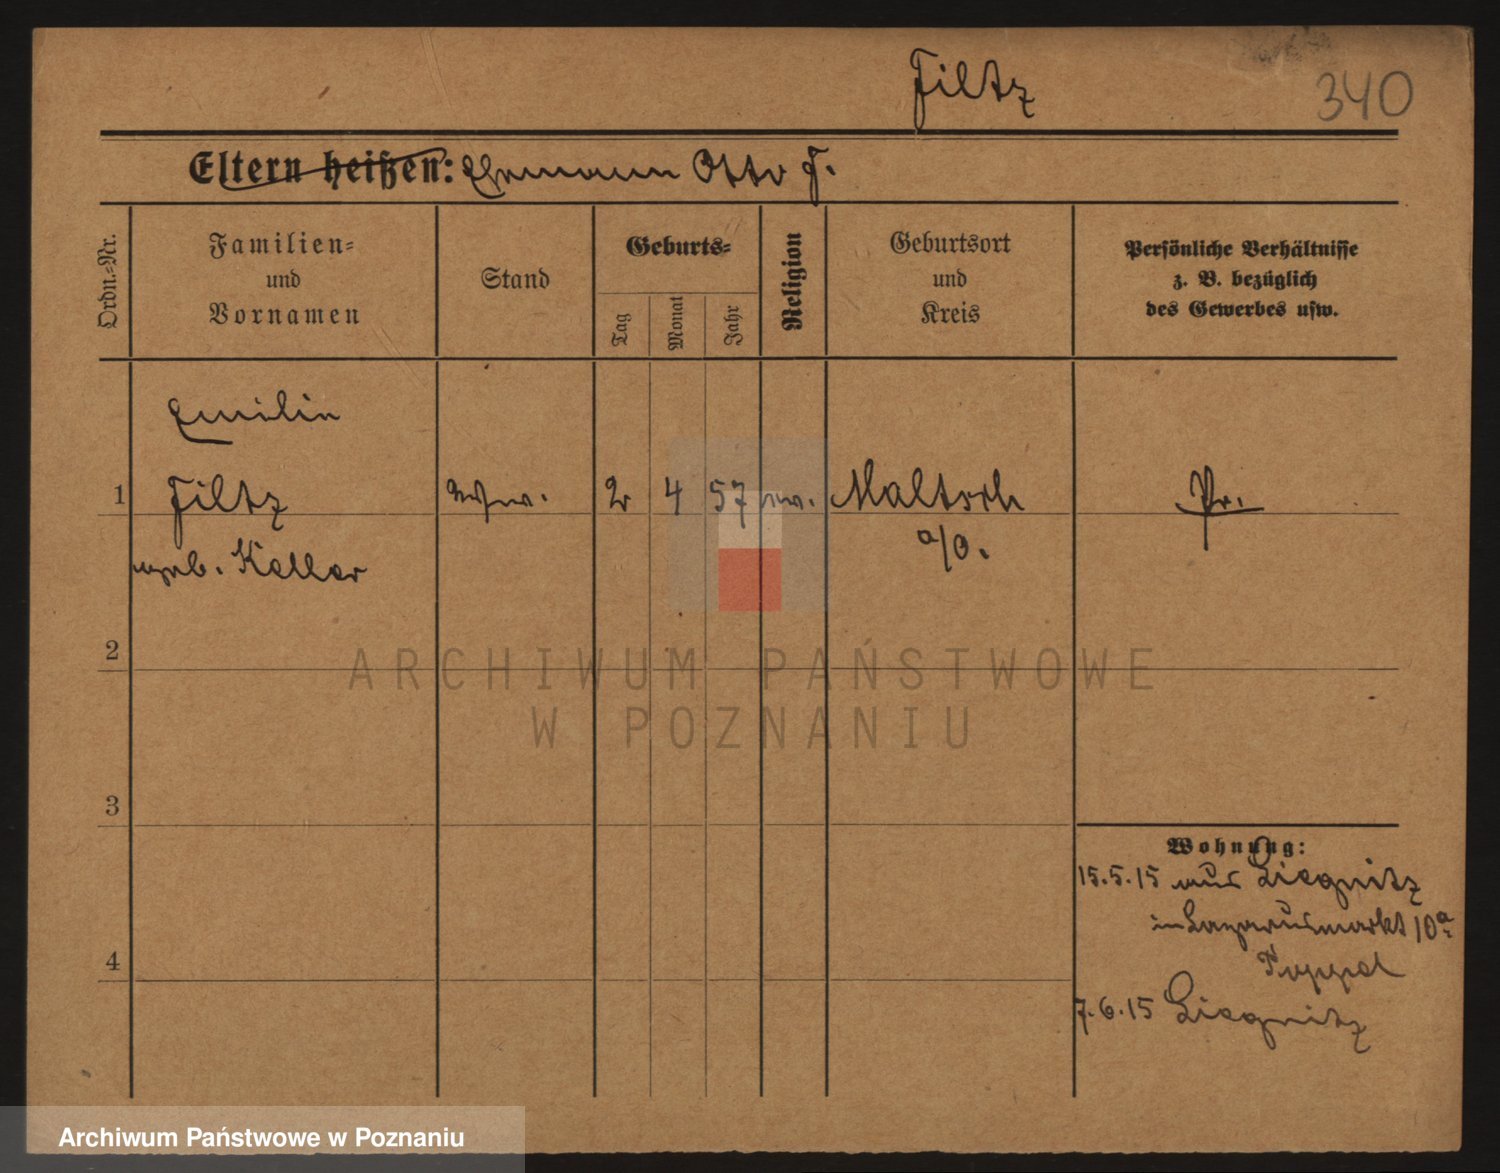 Filtz
340
Eltern heißen: Ehemann Otto F.
Ordn.-Nr.
Familien-
und
Vornamen
Stand
Geburts-
Tag
Monat
Jahr
Religion
Geburtsort
und
Kreis
Persönliche Verhältnisse
z. B. bezüglich
des Gewerbes usw.
Emilie
1 Filtz 2 4 57 ev. Maltsch Pr.
geb. Keller a/O.
2
3
4
Wohnung:
15.5.15 aus Liegnitz
Lazarusmarkt 10a
7.6.15 Liegnitz
ARCHIWUM PAŃSTWOWE
W POZNANIU
Archiwum Państwowe w Poznaniu